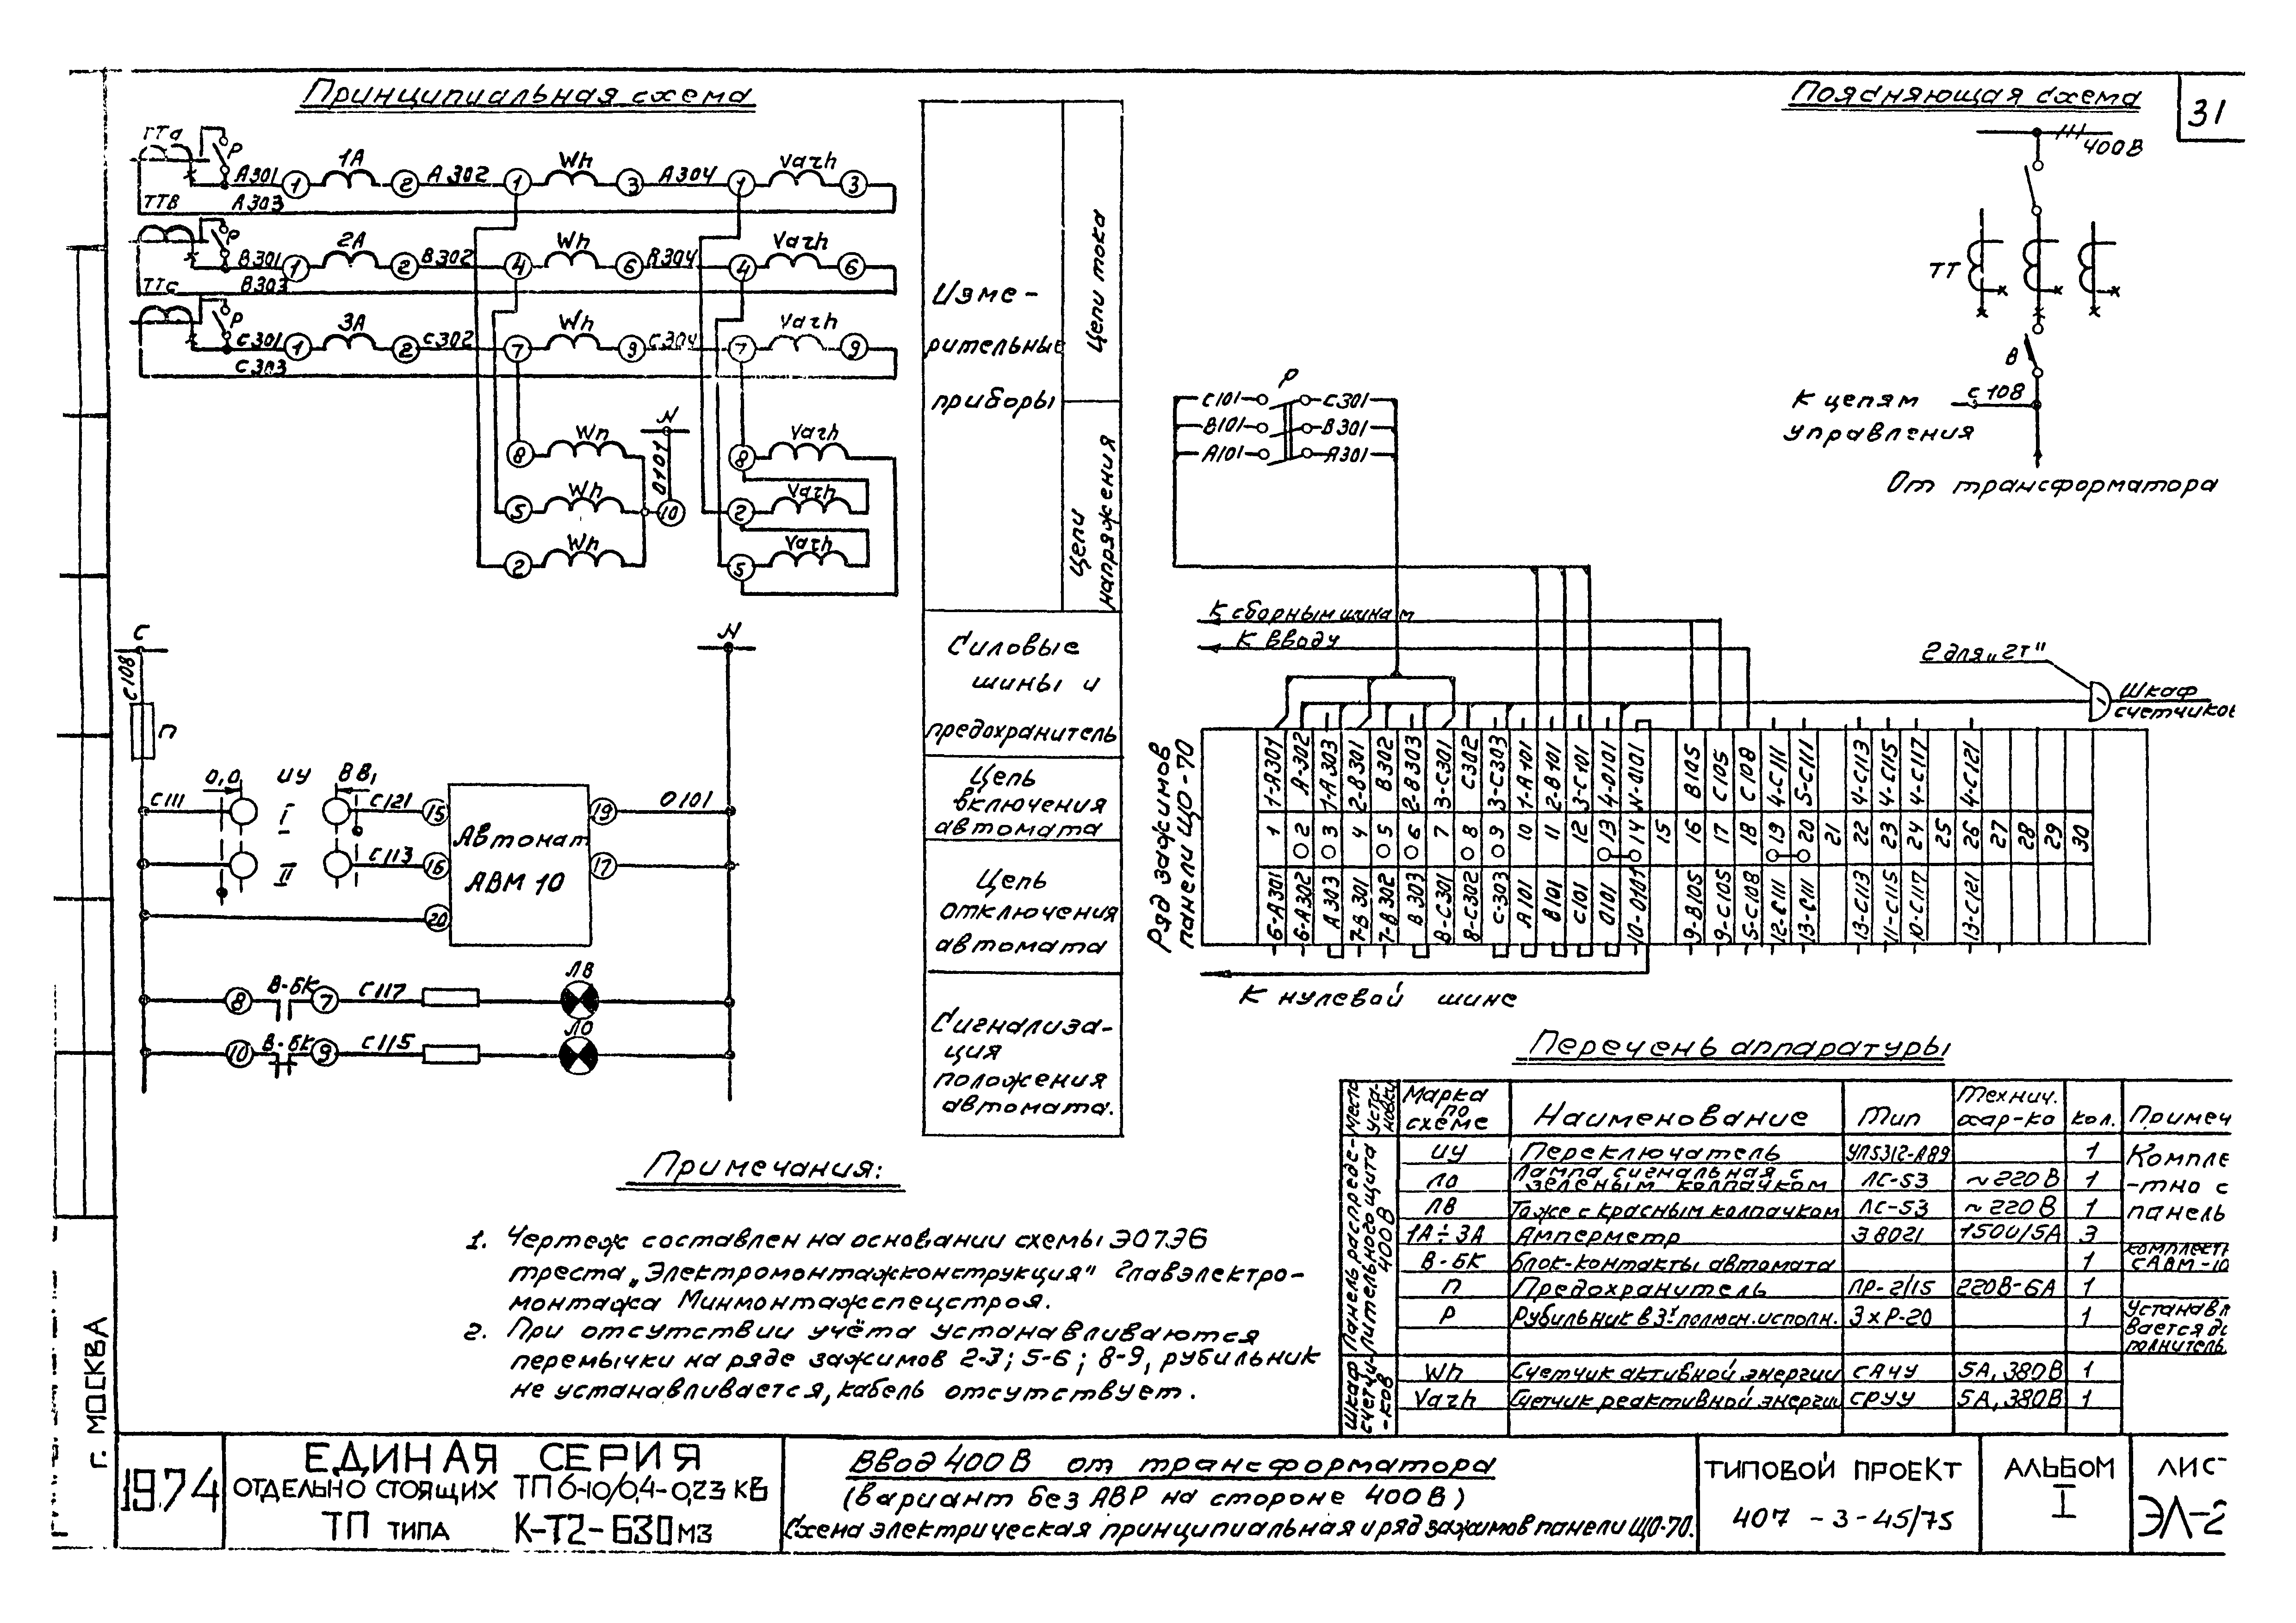 Принципиальная схема
Поясняющая схема
31
ТТа
Р
А301
1
1А
2
А302
1
Wh
3
А304
1
Varh
3
А303
ТТВ
Р
В301
1
2А
2
В302
4
Wh
6
В304
4
Varh
6
В303
ТТс
Р
С301
1
3А
2
С302
7
Wh
9
С304
7
Varh
9
С303
8
Wh
N
0101
10
8
Varh
5
Wh
2
Varh
2
Wh
5
Varh
Изме-
рительные
приборы
Цепи тока
Цепи
напряжения
Силовые
шины и
предохранитель
Цепь
включения
автомата
Цепь
отключения
автомата
Сигнализа-
ция
положения
автомата.
С
С108
П
N
О₁О
ИУ
ВВ₁
С111
I
С121
15
19
0101
II
С113
16
17
20
Автомат
АВМ 10
8
В-БК
7
С117
ЛВ
10
В-БК
9
С115
ЛО
400В
ТТ
В
С108
К цепям
управления
От трансформатора
Р
С101
С301
В101
В301
А101
А301
К сборным шинам
К вводу
2 для „2т"
Шкаф
Ряд зажимов
панели ЩО-70
1-А301
А-302
1-А303
2-В301
В302
2-В303
3-С301
С302
3-С303
1-А101
2-В101
3-С101
4-0101
N-0101
В105
С105
С108
4-С111
5-С111
4-С113
4-С115
4-С117
4-С121
1
2
3
4
5
6
7
8
9
10
11
12
13
14
15
16
17
18
19
20
21
22
23
24
25
26
27
28
29
30
6-А301
6-А302
А303
7-В301
7-В302
В303
8-С301
8-С302
С-303
А101
В101
С101
0101
10-0101
9-В105
9-С105
5-С108
12-С111
13-С111
13-С113
11-С115
10-С117
13-С121
К нулевой шине
Перечень аппаратуры
Место
уста-
новки
Марка
по
схеме
Наименование
Тип
Технич.
хар-ка
Кол.
Примеч
Панель распреде-
лительного щита
400В
ИУ
Переключатель
УП5312-А89
1
Компле
-тно с
панель
ЛО
Лампа сигнальная с
зеленым колпачком
ЛС-53
~220В
1
ЛВ
Тоже с красным колпачком
ЛС-53
~220В
1
1А÷3А
Амперметр
Э8021
1500/5А
3
В-БК
Блок-контакты автомата
1
с АВМ-10
П
Предохранитель
ПР-2/15
220В-6А
1
Р
Рубильник в 3х полюсн. исполн.
3хР-20
1
Шкаф
счетчи-
-ков
Wh
Счетчик активной энергии
САЧУ
5А, 380В
1
Varh
Счетчик реактивной энергии
СРУУ
5А, 380В
1
Примечания:
1. Чертеж составлен на основании схемы Э0736
треста „Электромонтажконструкция" Главэлектро-
монтажа Минмонтажспецстроя.
2. При отсутствии учёта устанавливаются
перемычки на ряде зажимов 2-3; 5-6; 8-9, рубильник
не устанавливается, кабель отсутствует.
г. МОСКВА
1974
ЕДИНАЯ СЕРИЯ
ОТДЕЛЬНО СТОЯЩИХ ТП 6-10/0,4-0,23 КВ
ТП ТИПА К-Т2-630 М3
Ввод 400В от трансформатора
(вариант без АВР на стороне 400В)
Схема электрическая принципиальная и ряд зажимов панели ЩО-70.
ТИПОВОЙ ПРОЕКТ
407-3-45/75
АЛЬБОМ
I
ЛИС
ЭЛ-2